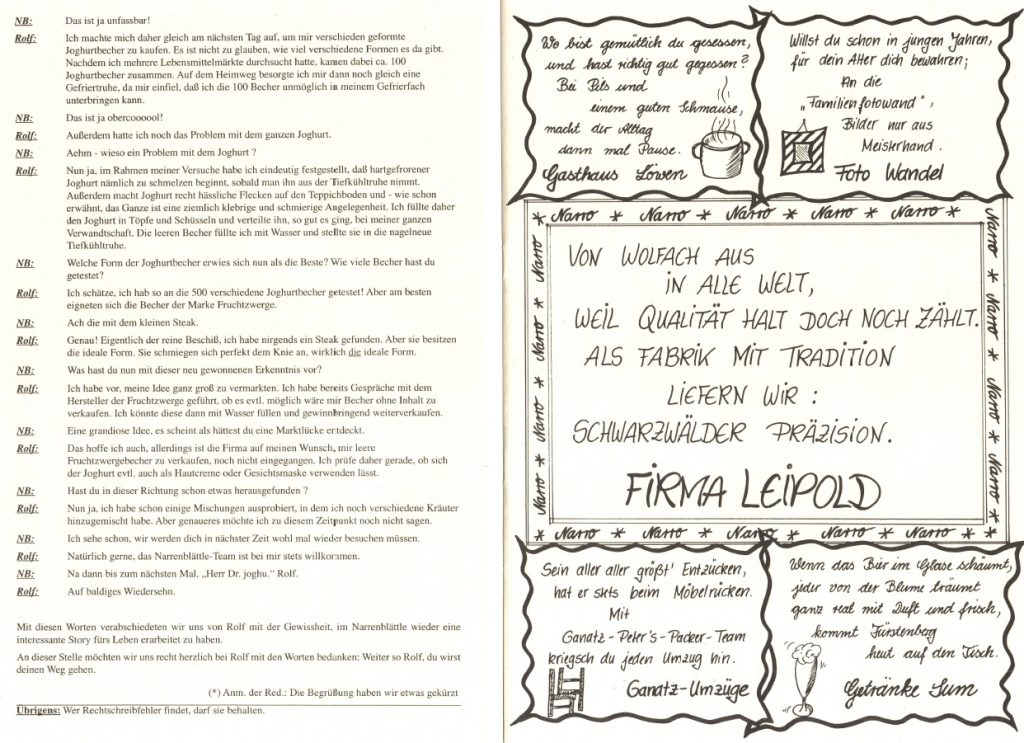 NB: Das ist ja unfassbar!
Rolf: Ich machte mich daher gleich am nächsten Tag auf, um mir verschieden geformte
Joghurtbecher zu kaufen. Es ist nicht zu glauben, wie viel verschiedene Formen es da gibt.
Nachdem ich mehrere Lebensmittelmärkte durchsucht hatte, kamen dabei ca. 100
Joghurtbecher zusammen. Auf dem Heimweg besorgte ich mir dann noch gleich eine
Gefriertruhe, da mir einfiel, daß ich die 100 Becher unmöglich in meinem Gefrierfach
unterbringen kann.
NB: Das ist ja obercoooool!
Rolf: Außerdem hatte ich noch das Problem mit dem ganzen Joghurt.
NB: Aehm - wieso ein Problem mit dem Joghurt ?
Rolf: Nun ja, im Rahmen meiner Versuche habe ich eindeutig festgestellt, daß hartgefrorener
Joghurt nämlich zu schmelzen beginnt, sobald man ihn aus der Tiefkühltruhe nimmt.
Außerdem macht Joghurt recht hässliche Flecken auf den Teppichboden und - wie schon
erwähnt, das Ganze ist eine ziemlich klebrige und schmierige Angelegenheit. Ich füllte daher
den Joghurt in Töpfe und Schüsseln und verteilte ihn, so gut es ging, bei meiner ganzen
Verwandtschaft. Die leeren Becher füllte ich mit Wasser und stellte sie in die nagelneue
Tiefkühltruhe.
NB: Welche Form der Joghurtbecher erwies sich nun als die Beste? Wie viele Becher hast du
getestet?
Rolf: Ich schätze, ich hab so an die 500 verschiedene Joghurtbecher getestet! Aber am besten
eigneten sich die Becher der Marke Fruchtzwerge.
NB: Ach die mit dem kleinen Steak.
Rolf: Genau! Eigentlich der reine Beschiß, ich habe nirgends ein Steak gefunden. Aber sie besitzen
die ideale Form. Sie schmiegen sich perfekt dem Knie an, wirklich die ideale Form.
NB: Was hast du nun mit dieser neu gewonnenen Erkenntnis vor?
Rolf: Ich habe vor, meine Idee ganz groß zu vermarkten. Ich habe bereits Gespräche mit dem
Hersteller der Fruchtzwerge geführt, ob es evtl. möglich wäre mir Becher ohne Inhalt zu
verkaufen. Ich könnte diese dann mit Wasser füllen und gewinnbringend weiterverkaufen.
NB: Eine grandiose Idee, es scheint als hättest du eine Marktlücke entdeckt.
Rolf: Das hoffe ich auch, allerdings ist die Firma auf meinen Wunsch, mir leere
Fruchtzwergebecher zu verkaufen, noch nicht eingegangen. Ich prüfe daher gerade, ob sich
der Joghurt evtl. auch als Hautcreme oder Gesichtsmaske verwenden lässt.
NB: Hast du in dieser Richtung schon etwas herausgefunden ?
Rolf: Nun ja, ich habe schon einige Mischungen ausprobiert, in dem ich noch verschiedene Kräuter
hinzugemischt habe. Aber genaueres möchte ich zu diesem Zeitpunkt noch nicht sagen.
NB: Ich sehe schon, wir werden dich in nächster Zeit wohl mal wieder besuchen müssen.
Rolf: Natürlich gerne, das Narrenblättle-Team ist bei mir stets willkommen.
NB: Na dann bis zum nächsten Mal, „Herr Dr. joghu.“ Rolf.
Rolf: Auf baldiges Wiedersehn.
Mit diesen Worten verabschiedeten wir uns von Rolf mit der Gewissheit, im Narrenblättle wieder eine
interessante Story fürs Leben erarbeitet zu haben.
An dieser Stelle möchten wir uns recht herzlich bei Rolf mit den Worten bedanken: Weiter so Rolf, du wirst
deinen Weg gehen.
(*) Anm. der Red.: Die Begrüßung haben wir etwas gekürzt
Übrigens: Wer Rechtschreibfehler findet, darf sie behalten.
Wo bist gemütlich du gesessen,
und hast richtig gut gegessen?
Bei Pils und
einem guten Schmause,
macht der Alltag
dann mal Pause.
Gasthaus Löwen
Willst du schon in jungen Jahren,
für dein Alter dich bewahren;
An die
„Familienfotowand",
Bilder nur aus
Meisterhand.
Foto Wandel
* Narro * Narro * Narro * Narro * Narro *
Narro * Narro * Narro * Narro * Narro
VON WOLFACH AUS
IN ALLE WELT,
WEIL QUALITÄT HALT DOCH NOCH ZÄHLT.
ALS FABRIK MIT TRADITION
LIEFERN WIR :
SCHWARZWÄLDER PRÄZISION.
FIRMA LEIPOLD
Narro * Narro * Narro * Narro * Narro
* Narro * Narro * Narro * Narro * Narro *
Sein aller aller größt' Entzücken,
hat er stets beim Möbelrücken.
Mit
Ganatz-Peter's-Packer-Team
kriegsch du jeden Umzug hin.
Ganatz-Umzüge
Wenn das Bier im Glase schäumt,
jeder von der Blume träumt
ganz real mit Duft und frisch,
kommt Fürstenberg
heut auf den Tisch.
Getränke Sum